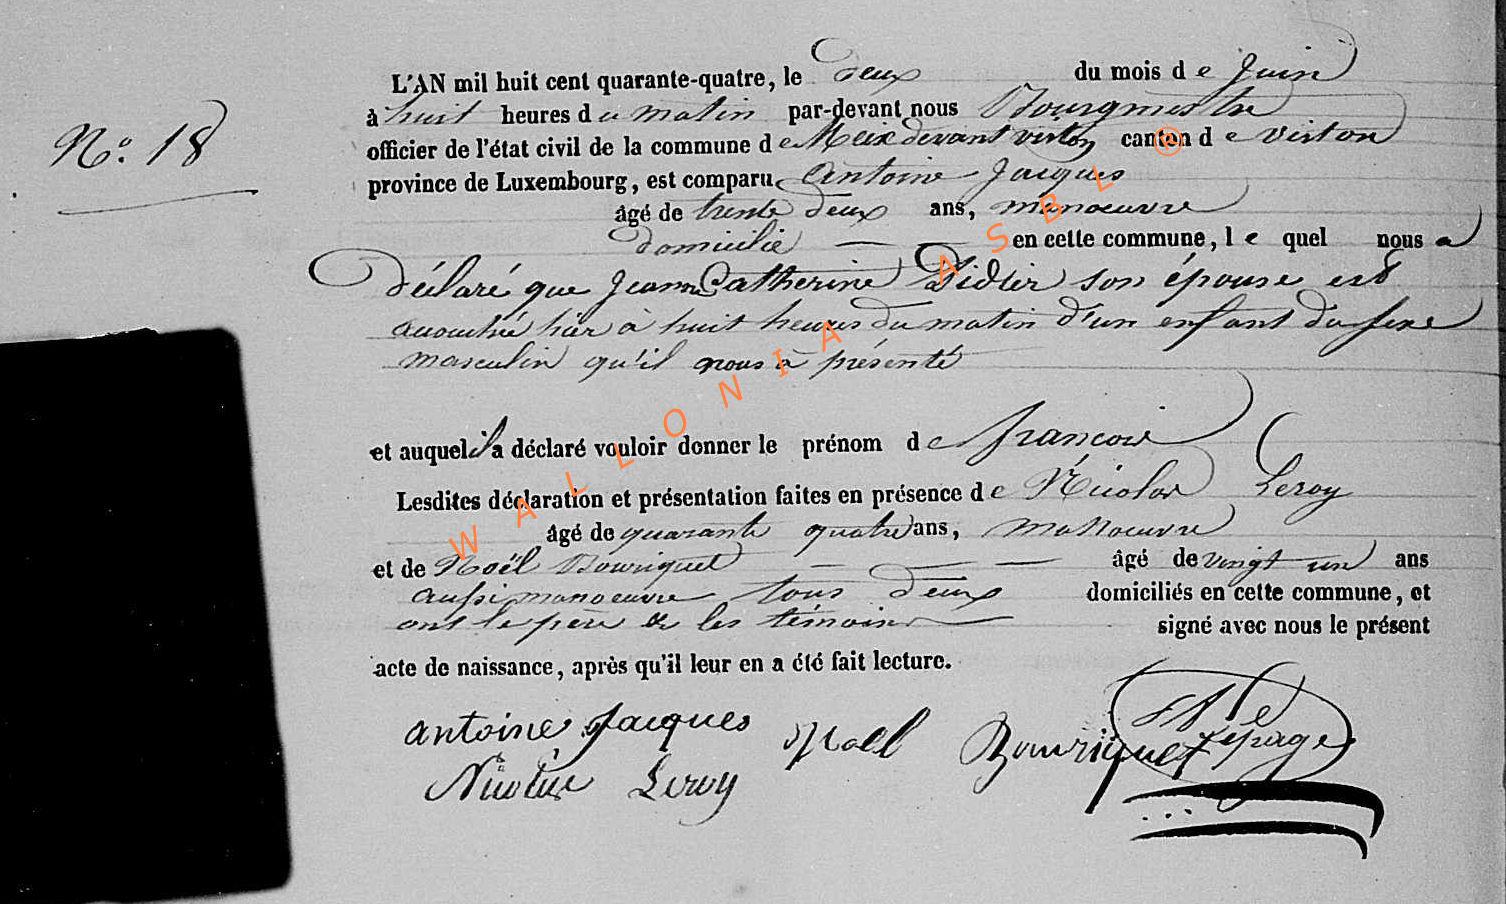 N.o 18
L'AN mil huit cent quarante-quatre, le deux du mois de Juin
à huit heures du matin par-devant nous Bourgmestre
officier de l'état civil de la commune de Meix devant virton canton de virton
province de Luxembourg, est comparu Antoine Jacques
âgé de trente deux ans, manoeuvre
domicilié en cette commune, le quel nous a
déclaré que Jeanne Catherine Didier son épouse est
accouchée hier à huit heures du matin d'un enfant du sexe
masculin qu'il nous à présenté
et auquel il a déclaré vouloir donner le prénom de françois
Lesdites déclaration et présentation faites en présence de Nicolas Leroy
âgé de quarante quatre ans, manoeuvre
et de Noël Bouriquet âgé de vingt un ans
aussi manoeuvre tous deux domiciliés en cette commune, et
ont le père & les témoins signé avec nous le présent
acte de naissance, après qu'il leur en a été fait lecture.
antoine Jacques Noel Bouriquet Lepage
Nicolas Leroy
WALLONIA ASBL ®